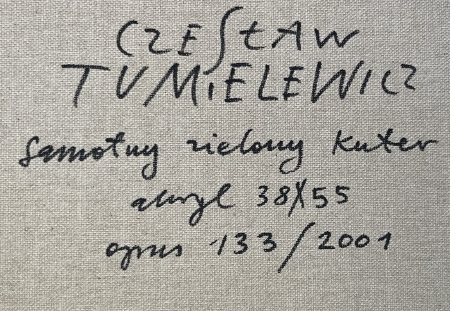 CZESŁAW
TUMIELEWICZ
Samotny zielony Kuter
akryl 38X55
opus 133/2001